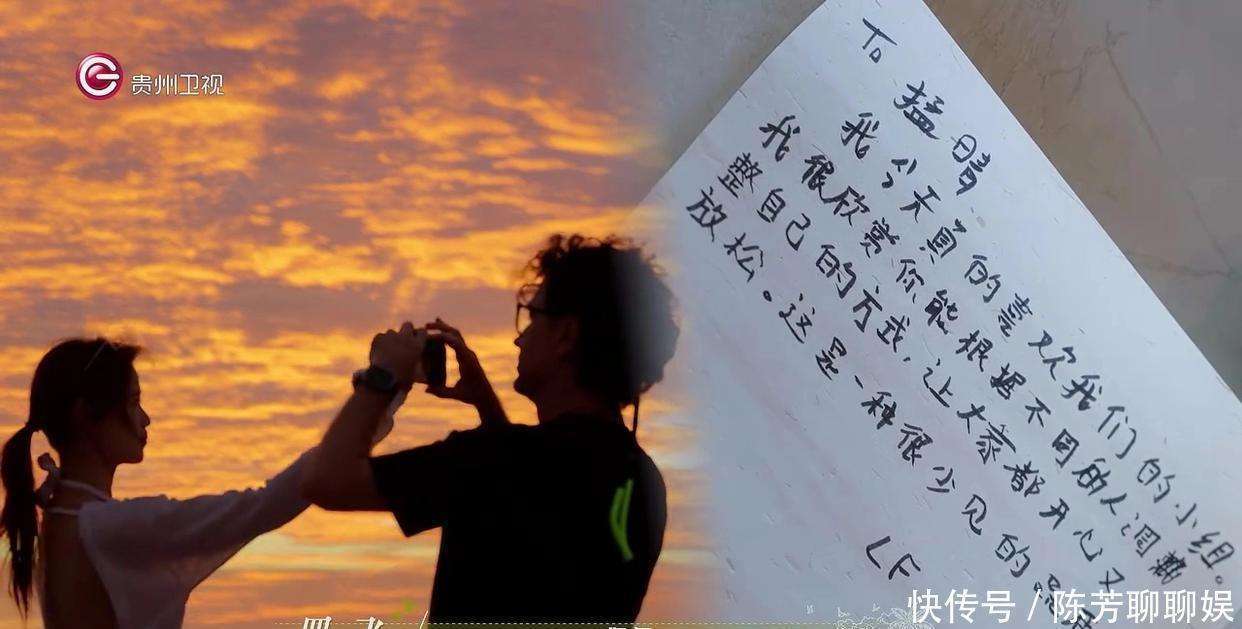 贵州卫视
To
猛晴
我今天真的喜欢我们的小组。
我很欣赏你能根据不同的人调
整自己的方式，让大家都开心又
放松。这是一种很少见的
LF
快传号 / 陈芳聊聊娱